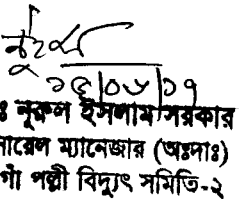 ১৫/০৬/১৭
ঃ নূরুল ইসলাম সরকার
ারেল ম্যানেজার (অঃদাঃ)
গাঁ পল্লী বিদ্যুৎ সমিতি-২